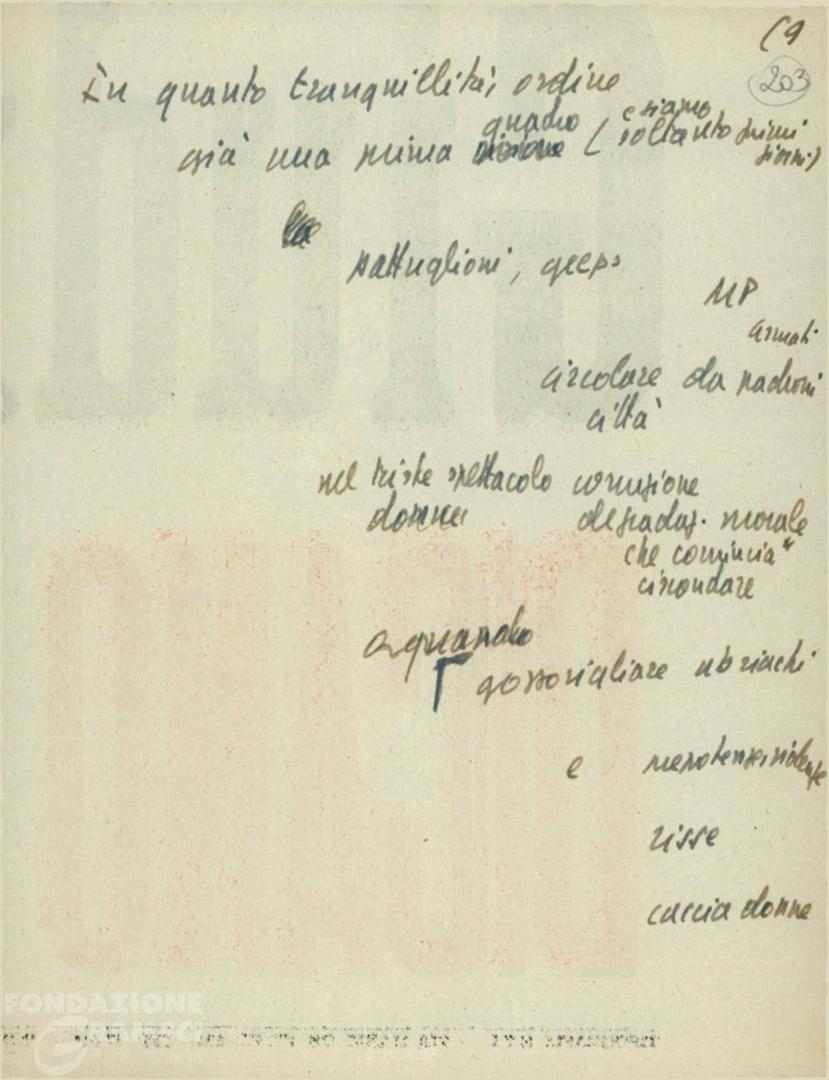 (9
203
In quanto tranquillità, ordine
già una prima quadro (e siamo soltanto primi giorni)
pattuglioni, geeps
MP
armati
circolare da padroni
città
nel triste spettacolo corruzione
donne degradaz. morale
che comincia
circondare
a quando
gozzovigliare ubriachi
e prepotenze, violenze
risse
caccia donne
FONDAZIONE
GRAMSCI